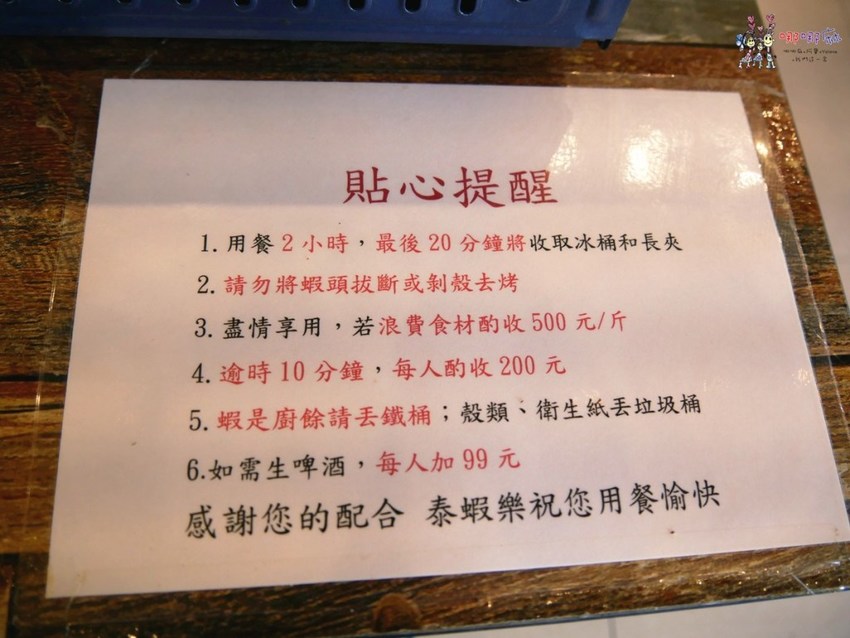 貼心提醒
1. 用餐 2 小時，最後 20 分鐘將收取冰桶和長夾
2. 請勿將蝦頭拔斷或剝殼去烤
3. 盡情享用，若浪費食材酌收 500 元/斤
4. 逾時 10 分鐘，每人酌收 200 元
5. 蝦是廚餘請丟鐵桶；殼類、衛生紙丟垃圾桶
6.如需生啤酒，每人加 99 元
感謝您的配合 泰蝦樂祝您用餐愉快